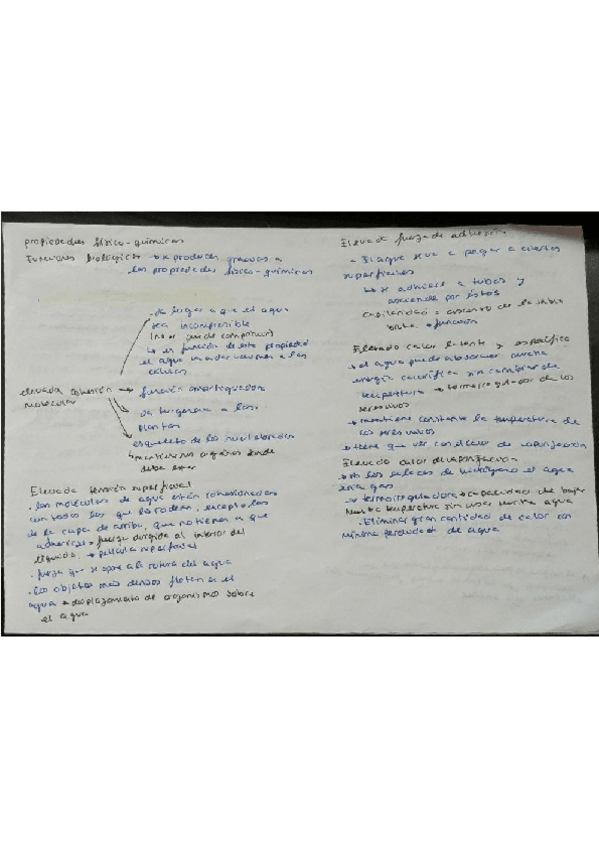 propiedades físico-químicas
Funciones biológicas → se producen gracias a
las propiedades físico-químicas
elevada cohesión
molecular
→ da lugar a que el agua
sea incompresible
(no se puede comprimir)
↳ es función de esta propiedad
el agua da volumen a las
células
→ función amortiguadora
→ da turgencia a las
plantas
esqueleto de los invertebrados
↳ mantiene los órganos donde
debe estar
Elevada tensión superficial
· las moléculas de agua están cohesionadas
con todas las que la rodean, excepto las
de la capa de arriba, que no tienen a que
adherirse → fuerza dirigida al interior del
líquido → película superficial
· fuerza que se opone a la rotura del agua
· los objetos más densos flotan en el
agua → desplazamiento de organismos sobre
el agua
Elevada fuerza de adhesión
- El agua se va a pegar a ciertas
superficies
↳ se adhiere a tubos y
asciende por éstos
capilaridad: ascenso de la savia
bruta → función
Elevado calor latente y específico
→ el agua puede absorber mucha
energía calorífica sin cambiar de
temperatura → termorregulador de los
seres vivos
→ mantiene constante la temperatura de
los seres vivos
→ tiene que ver con el calor de vaporización
Elevado calor de vaporización
→ No los enlaces de hidrógeno el agua
sería gas
→ termorreguladora → capacidad de bajar
nuestra temperatura sin usar mucha agua
· Eliminar gran cantidad de calor con
mínima pérdida de agua